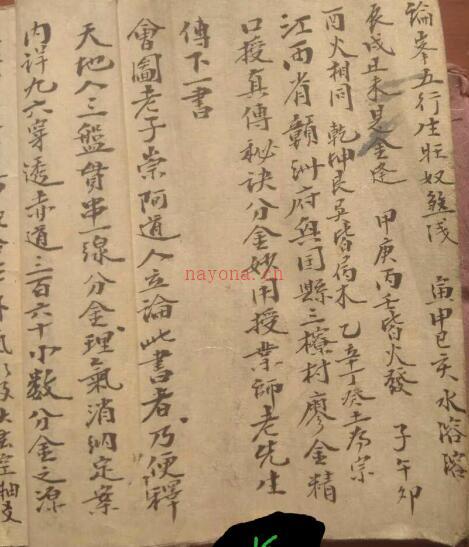 論峯五行生旺奴煞洩 寅甲巳亥水溶溶
辰戌丑未是金逢 甲庚丙壬皆火發 子午卯
酉火相同 乾坤艮巽皆為木 乙辛丁癸土為宗
江西省贛州府興国縣三橑村廖金精
口授真傳秘诀分金妙用授業師老先生
傳下一書
會圖老子崇阿道人立論此書者乃便釋
天地人三盤貫串一線分金理氣消納定案
内詳九六穿透赤道三百六十小數分金之源
nayona.cn